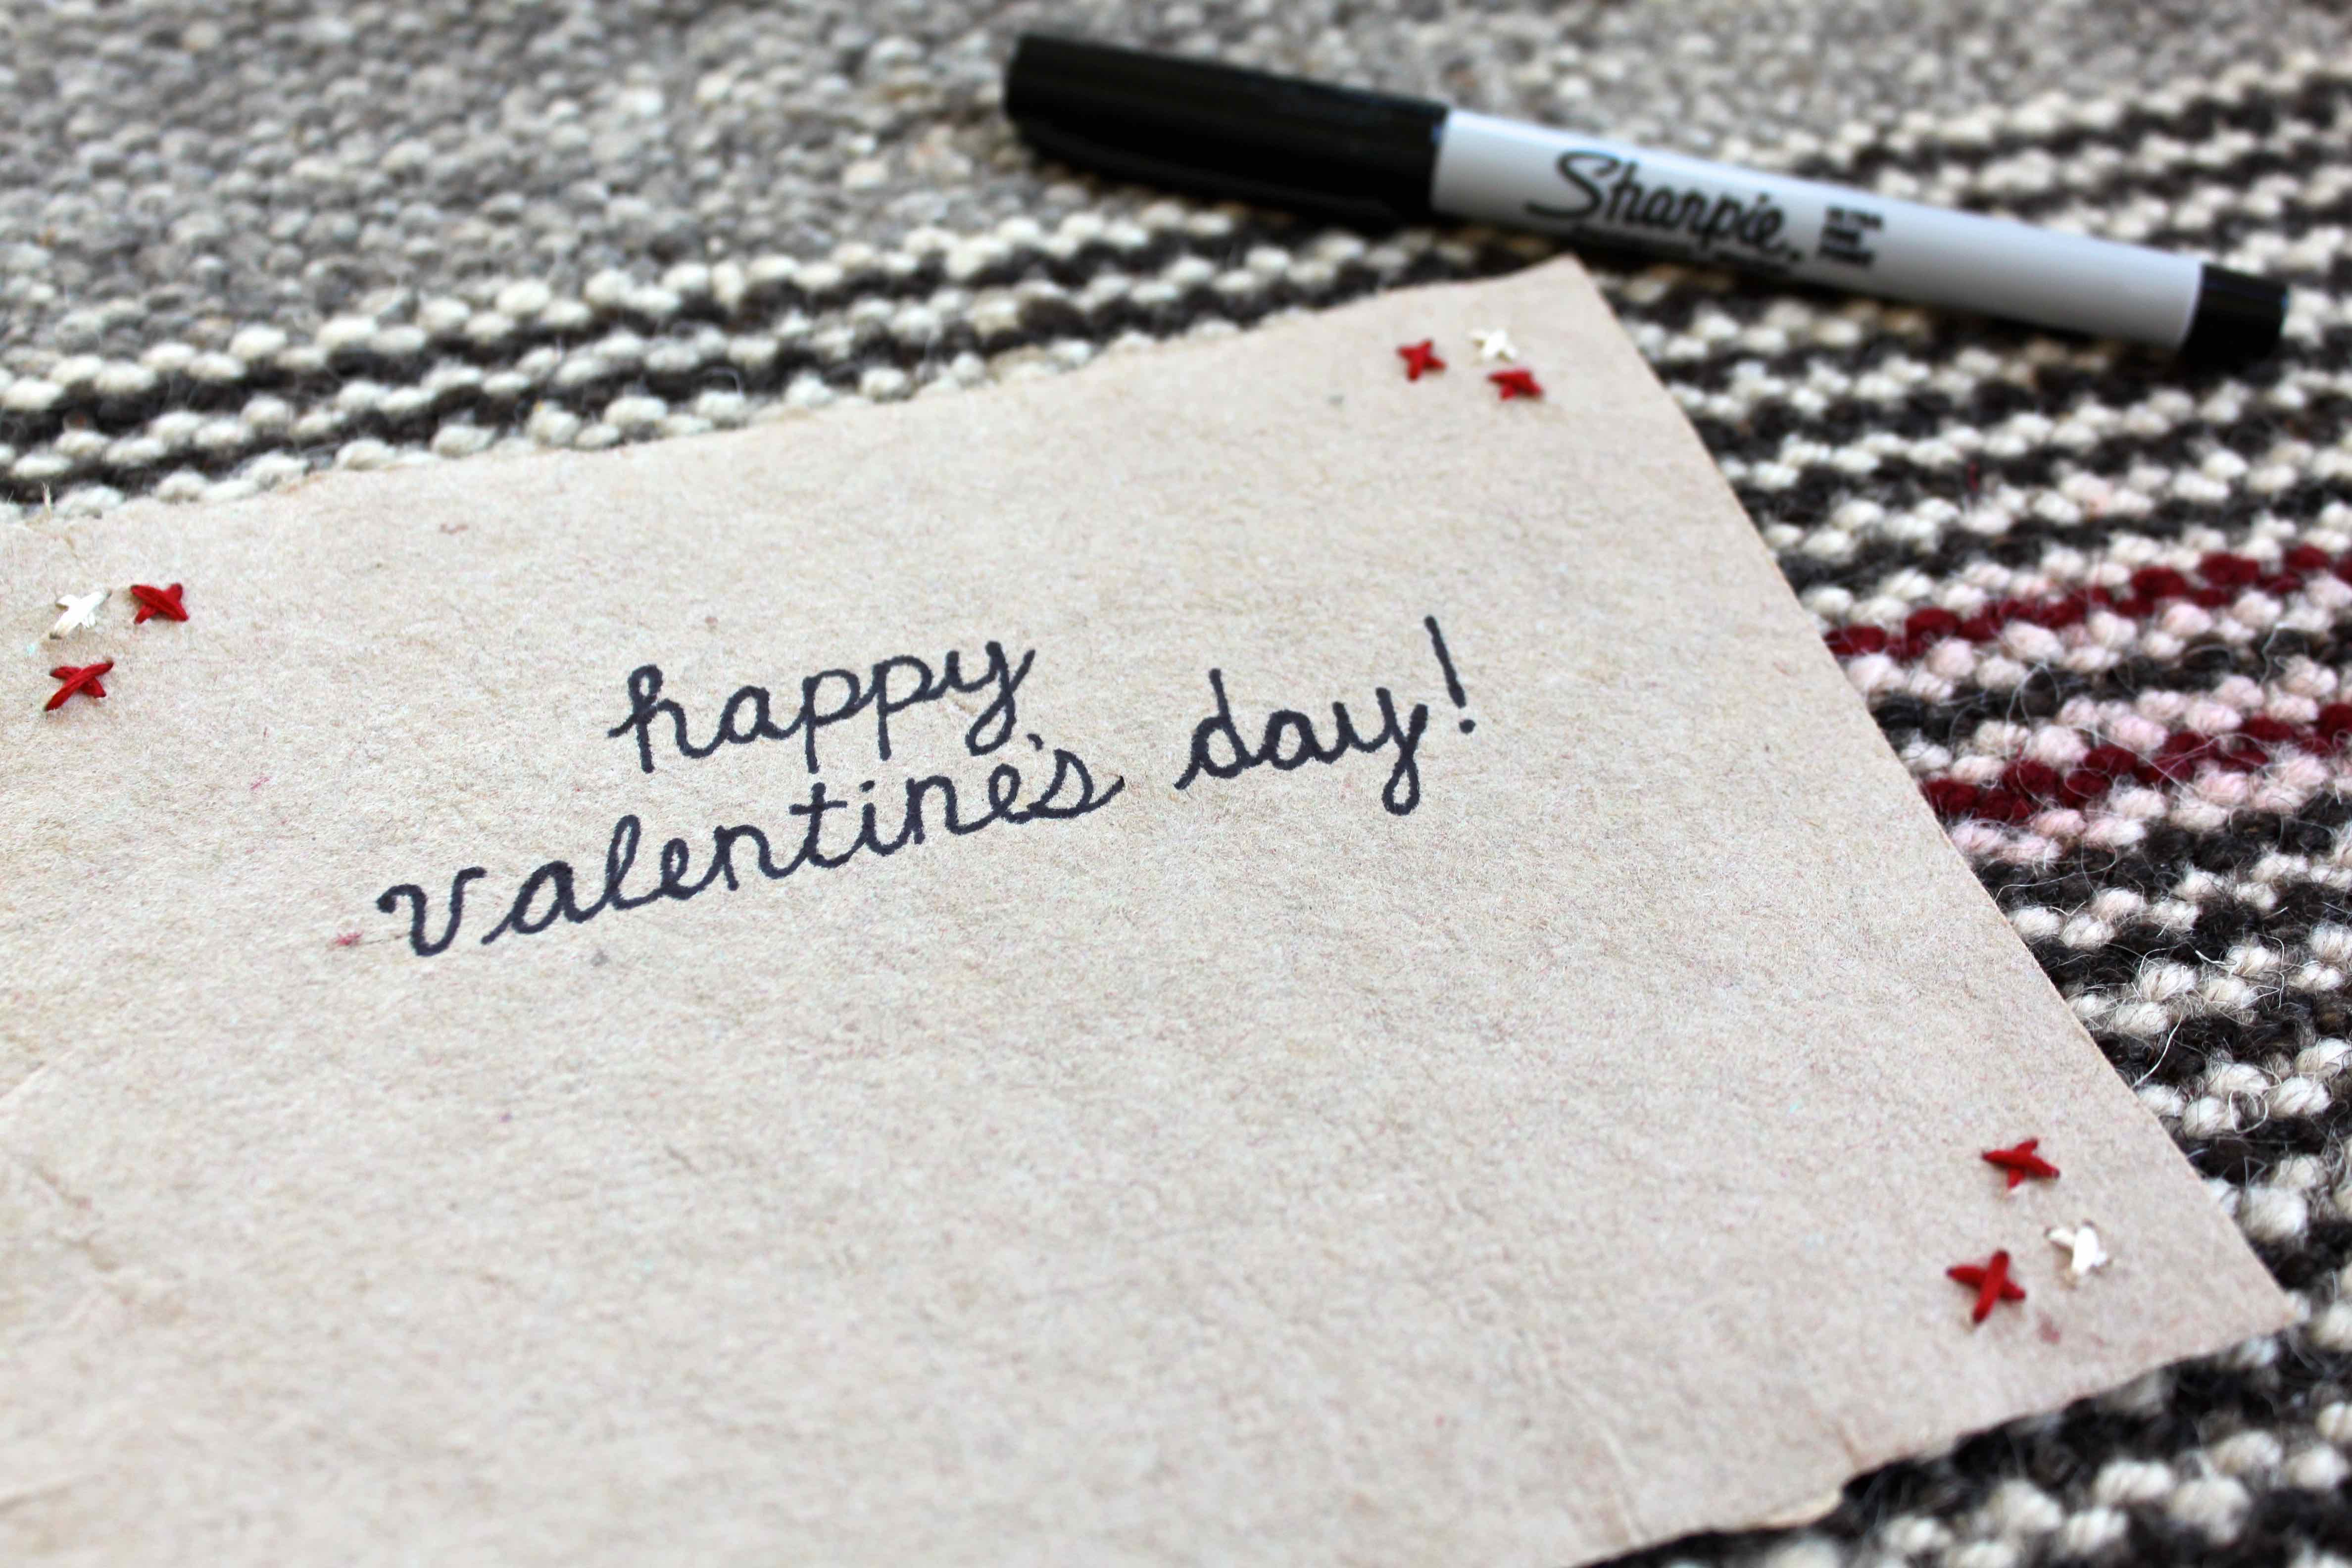 Sharpie.
happy
valentine's day!